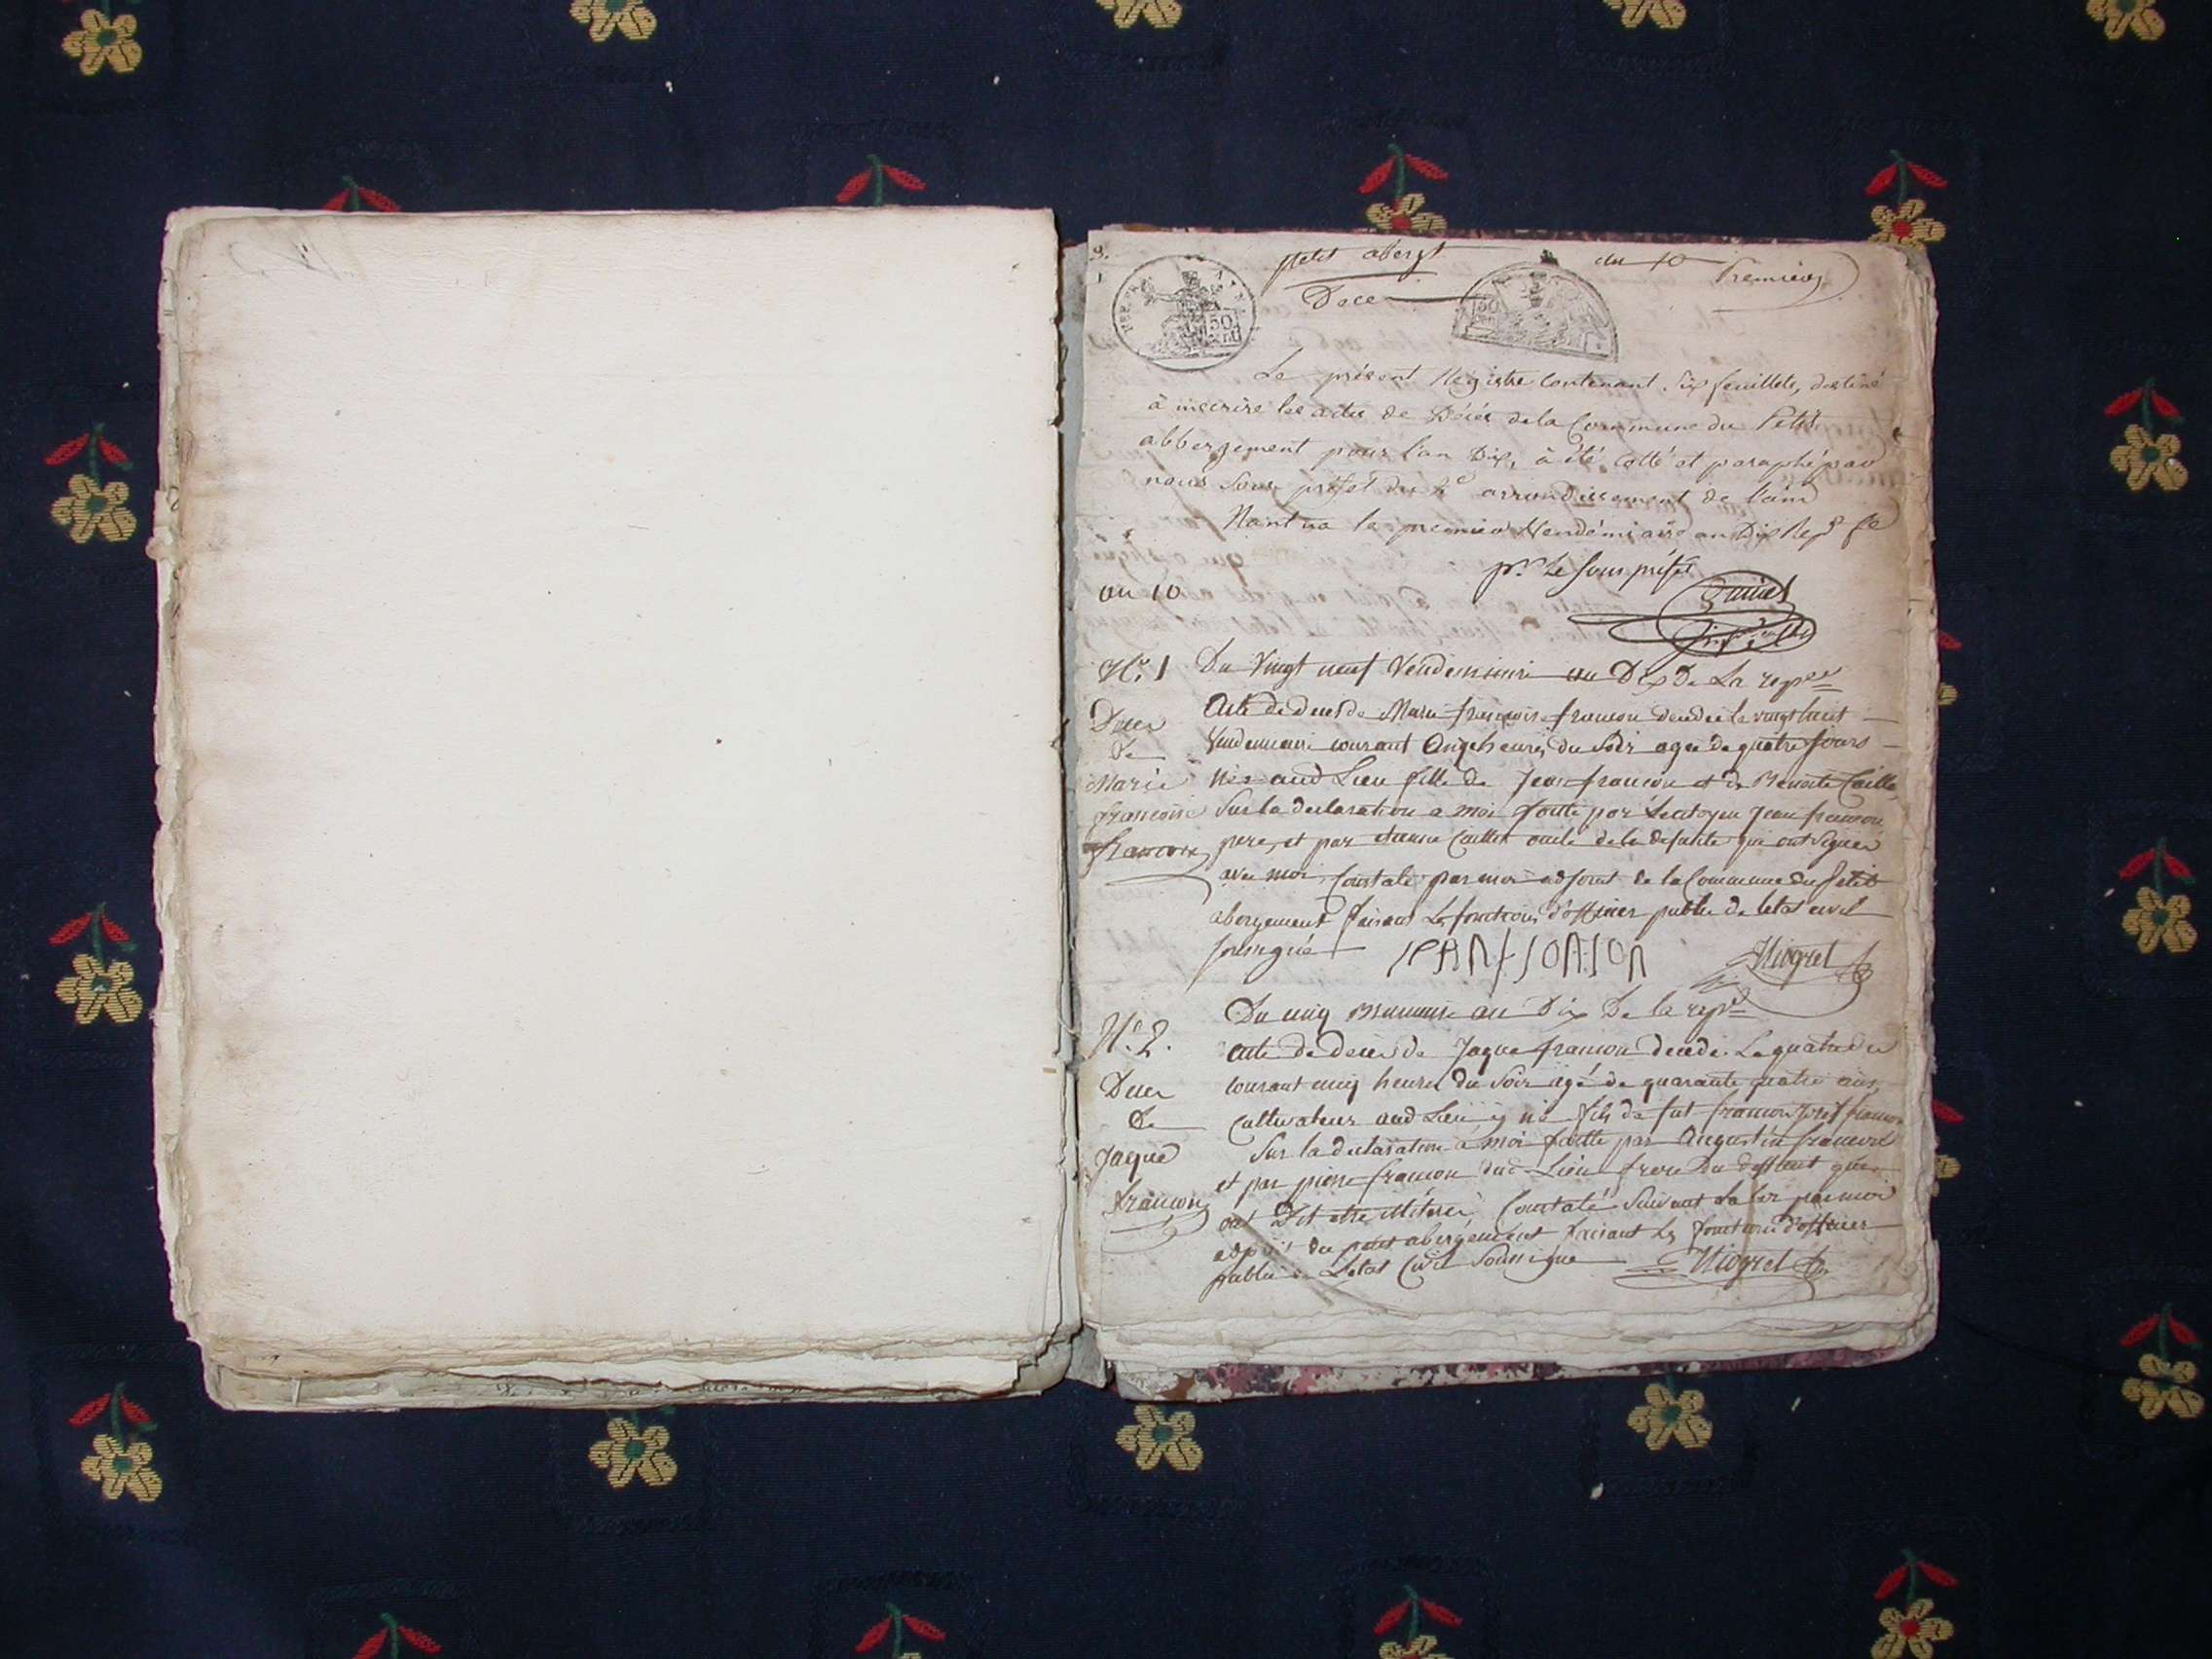 petit aberg.t an 10
Premier
Dece
50
50
Le présent Registre contenant six feuillets, destiné
à inscrire les actes de Décès de la Commune du Petit
abbergement pour l'an Dix, à été cotté et paraphé par
nous Sous préfet du arrondissement de l'ain
Nantua le premier Vendémiaire an Dix Rep. fse
pr. Le Sous préfet
an 10
N.o 1 Du Vingt neuf Vendemiaire an Dix De La repee
Deces
De
Marie
françoise
francon
Acte de deces de Marie françoise francon decedee le vingt huit
Vendemiaire courant Onze heures du Soir agee de quatre Jours
née aud Lieu fille de Jean francon et de Benoite Caillet
Sur la declaration a moi faitte par Le citoyen Jean francon
pere, et par Caillet oncle de la defunte qui ont Signés
avec moi, Constaté par moi adjoint de la Commune du petit
abergement faisant Les fonctions d'officier public de letat civil
soussigné
Niogret
N.o 2.
Du cinq Brumaire an Dix De la repe
Deces
De
Jaque
francon
acte de deces de Jaque francon decede Le quatre du
courant cinq heures du Soir agé de quarante quatre ans,
Cultivateur aud Lieu y né fils de fut francon
Sur la declaration a moi faitte par Augustin francon
et par pierre francon dud Lieu frere Du deffunt qui
ont Dit etre illiteré, Constaté Suivant La Loi par moi
adjoint du petit abergement faisant Les fonctions d'officier
public de Letat Civil Soussigne Niogret